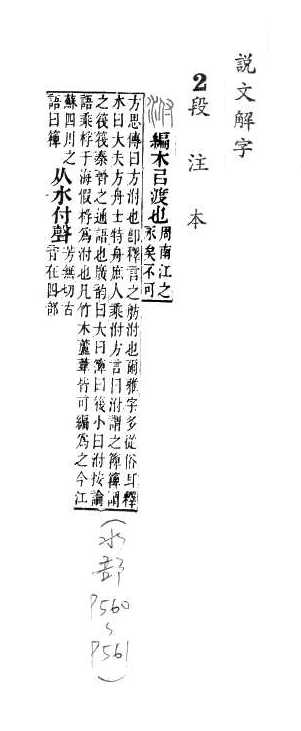 說文解字
2段注本
泭 編木㠯渡也 周南江之
永矣不可
方思傳曰方泭也卽釋言之舫泭也爾雅字多從俗耳釋
水曰大夫方舟士特舟庶人乘泭方言曰泭謂之簰簰謂
之筏筏秦晉之通語也廣韵曰大曰簰曰筏小曰泭按論
語乘桴于海假桴爲泭也凡竹木蘆葦皆可編爲之今江
蘇四川之
語曰簰
从水付聲
芳無切古
音在四部
(水部 P560~P561)